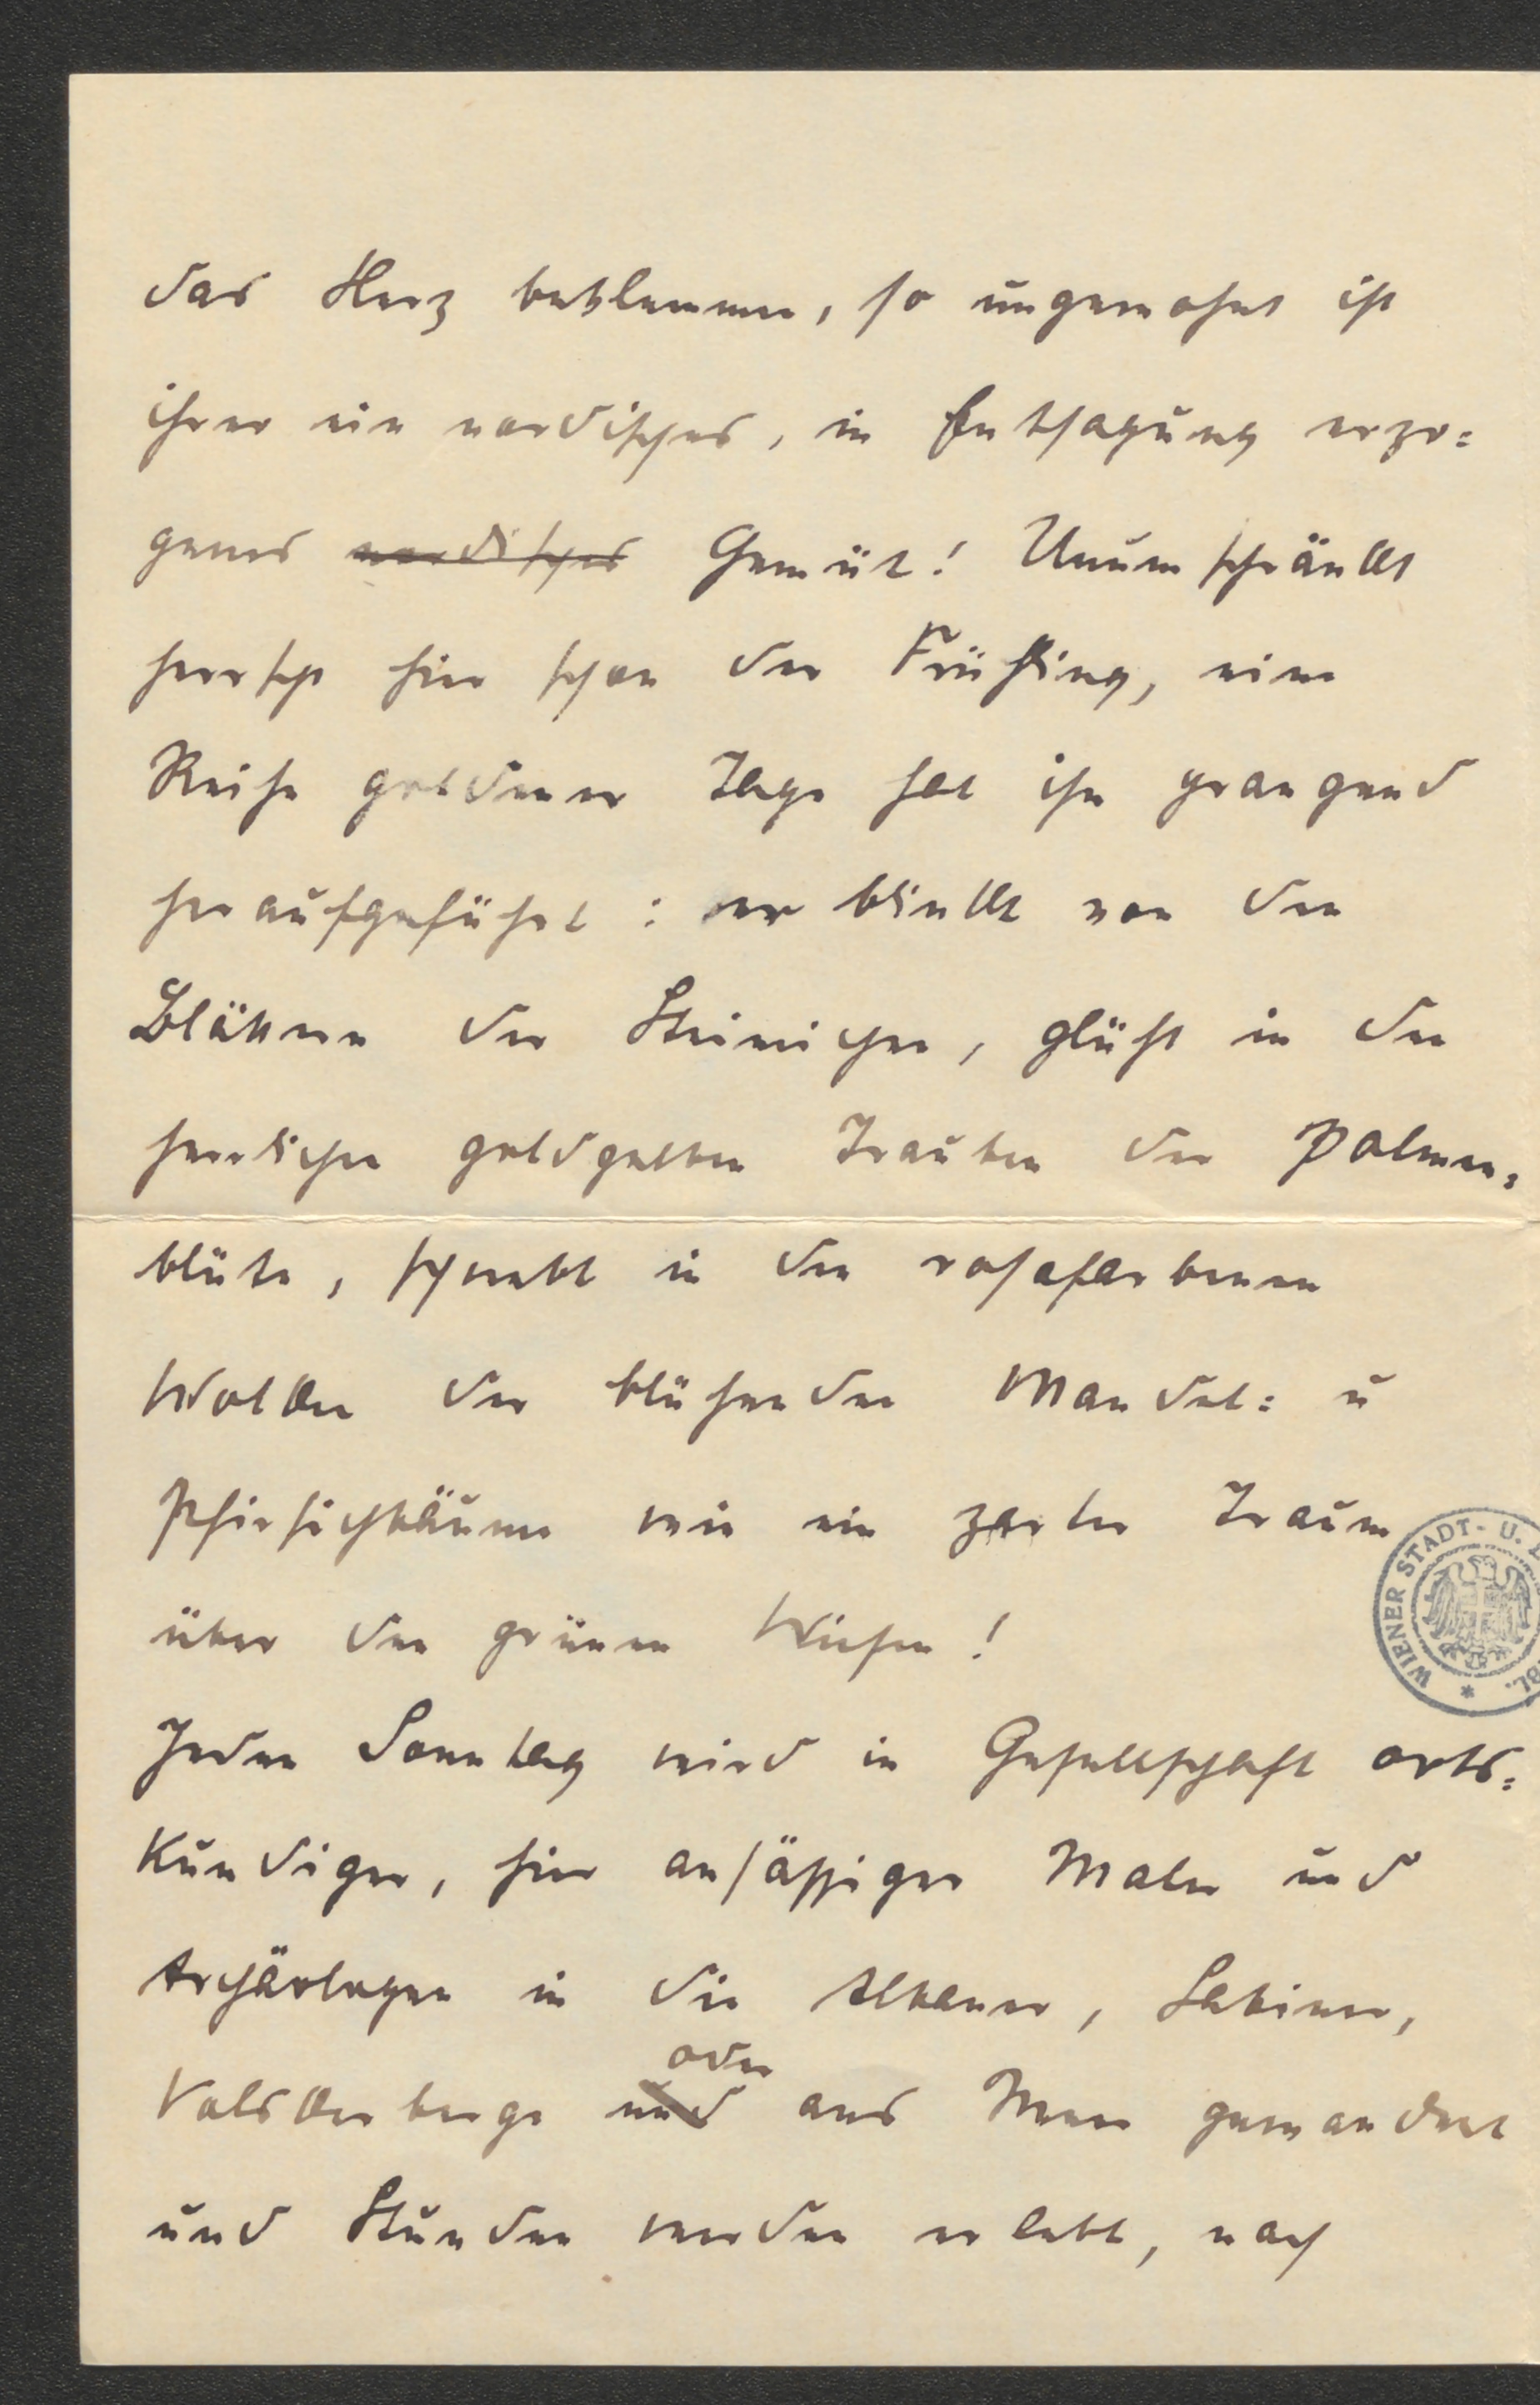 das Herz beklemmen, so ungewohnt ist
ihrer ein nordisches, in Entsagung erzo=
genes nordisches Gemüt! Unumschränkt
herrscht hier schon der Frühling, eine
Reihe goldener Tage hat ihn prangend
heraufgeführt: er blinkt von den
Blättern der Steineichen, glüht in den
herrlichen goldgelben Trauben der Palmen=
blüte, schwebt in den rosafarbenen
Wolken der blühenden Mandel= u
Pfirsichbäume wie ein zarter Traum
über den grünen Wiesen!
Jeden Sonntag wird in Gesellschaft orts=
kundiger, hier ansässiger Maler und
Archäologen in die Albaner, Sabiner,
oder
Volskerberge und ans Meer gewandert
und Stunden werden erlebt, nach
WIENER STADT- U.